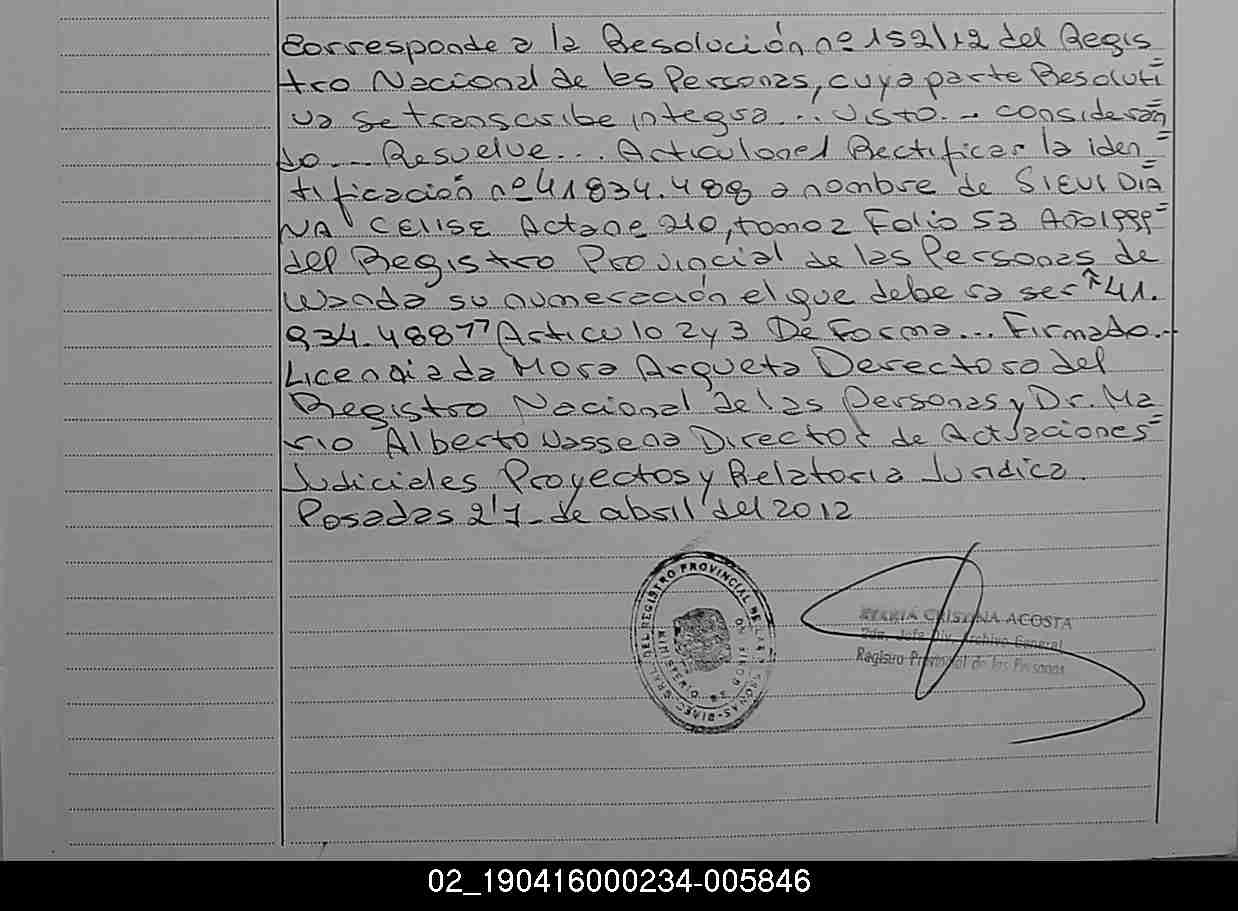 Corresponde a la Resolución nº 152/12 del Regis
tro Nacional de las Personas, cuya parte Resoluti
va se transcribe integra... Visto. - Consideran
do... Resuelve... Articulo nº1 Rectificar la iden
tificación nº 41834.488 a nombre de SIEUI DIA
NA CELISE Acta nº 210, tomo 2 Folio 53 Año 1999
del Registro Provincial de las Personas de
Wanda su numeración el que debera ser "41.
934.488" Articulo 2 y 3 De Forma... Firmado.-
Licenciada Mora Arqueta Derectora del
Registro Nacional de las Personas y Dr. Ma
rio Alberto Vassena Director de Actuaciones
Judiciales Proyectos y Relatoria Juridica.
Posadas 27 - de abril del 2012
MARIA CRISTINA ACOSTA
2da. Jefe Div. Archivo General
Registro Provincial de las Personas
DEL REGISTRO PROVINCIAL DE LAS PERSONAS
02_190416000234-005846